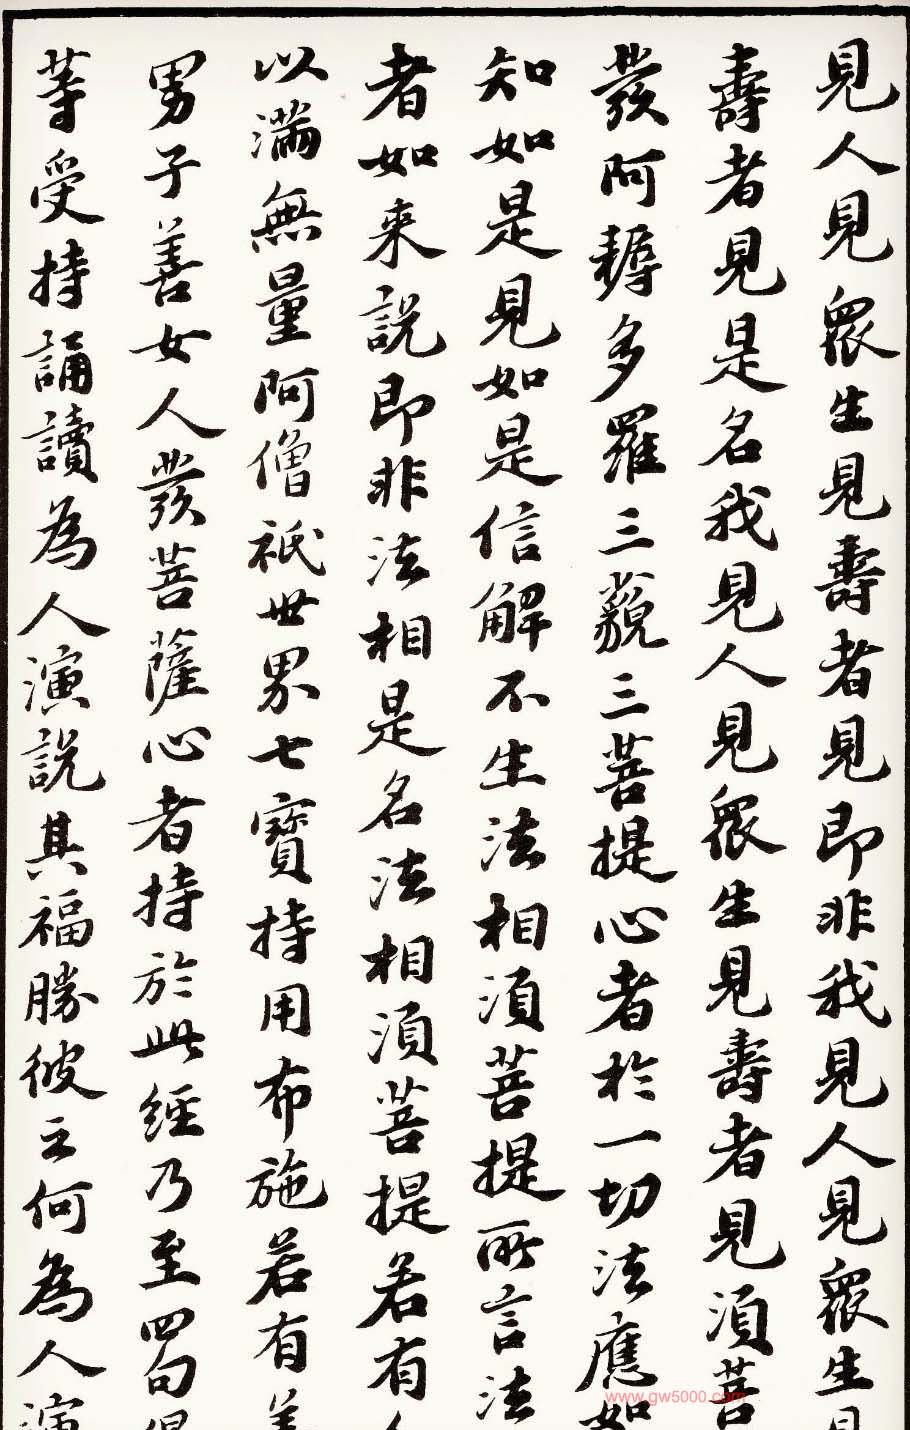 見人見眾生見壽者見即非我見人見眾生見
壽者見是名我見人見眾生見壽者見須菩
發阿耨多羅三藐三菩提心者於一切法應如
知如是見如是信解不生法相須菩提所言法
者如来說即非法相是名法相須菩提若有人
以滿無量阿僧祇世界七寶持用布施若有善
男子善女人發菩薩心者持於此經乃至四句偈
等受持誦讀為人演說其福勝彼云何為人演
www.gw5000.com